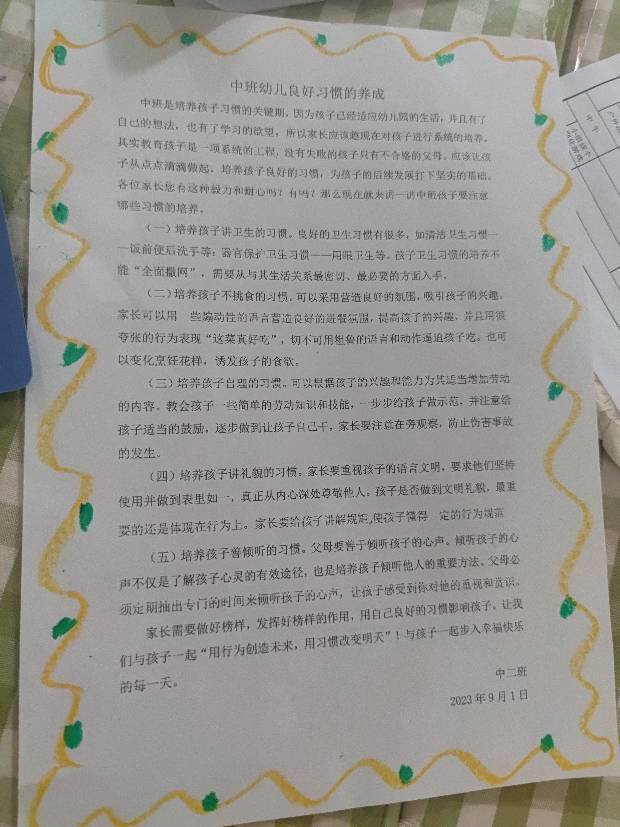 中班幼儿良好习惯的养成
中班是培养孩子习惯的关键期，因为孩子已经适应幼儿园的生活，并且有了
自己的想法，也有了学习的欲望，所以家长应该趁现在对孩子进行系统的培养。
其实教育孩子是一项系统的工程，没有失败的孩子只有不合格的父母。应该让孩
子从点点滴滴做起，培养孩子良好的习惯，为孩子的后续发展打下坚实的基础。
各位家长您有这种毅力和耐心吗？有吗？那么现在就来讲一讲中班孩子要注意
哪些习惯的培养。
（一）培养孩子讲卫生的习惯。良好的卫生习惯有很多，如清洁卫生习惯一
一饭前便后洗手等；器官保护卫生习惯——用眼卫生等。孩子卫生习惯的培养不
能“全面撒网”，需要从与其生活关系最密切、最必要的方面入手。
（二）培养孩子不挑食的习惯，可以采用营造良好的氛围，吸引孩子的兴趣。
家长可以用一些煽动性的语言营造良好的进餐氛围，提高孩子的兴趣，并且用很
夸张的行为表现“这菜真好吃”，切不可用粗鲁的语言和动作逼迫孩子吃。也可
以变化烹饪花样，诱发孩子的食欲。
（三）培养孩子自理的习惯。可以根据孩子的兴趣和能力为其适当增加劳动
的内容。教会孩子一些简单的劳动知识和技能，一步步给孩子做示范，并注意给
孩子适当的鼓励，逐步做到让孩子自己干，家长要注意在旁观察，防止伤害事故
的发生。
（四）培养孩子讲礼貌的习惯。家长要重视孩子的语言文明，要求他们坚持
使用并做到表里如一，真正从内心深处尊敬他人。孩子是否做到文明礼貌，最重
要的还是体现在行为上。家长要给孩子讲解规矩,使孩子懂得一定的行为规范
（五）培养孩子善倾听的习惯。父母要善于倾听孩子的心声。倾听孩子的心
声不仅是了解孩子心灵的有效途径，也是培养孩子倾听他人的重要方法。父母必
须定期抽出专门的时间来倾听孩子的心声，让孩子感受到你对他的重视和赏识。
家长需要做好榜样，发挥好榜样的作用，用自己良好的习惯影响孩子。让我
们与孩子一起“用行为创造未来，用习惯改变明天”！与孩子一起步入幸福快乐
的每一天。
中二班
2023年9月1日
中午